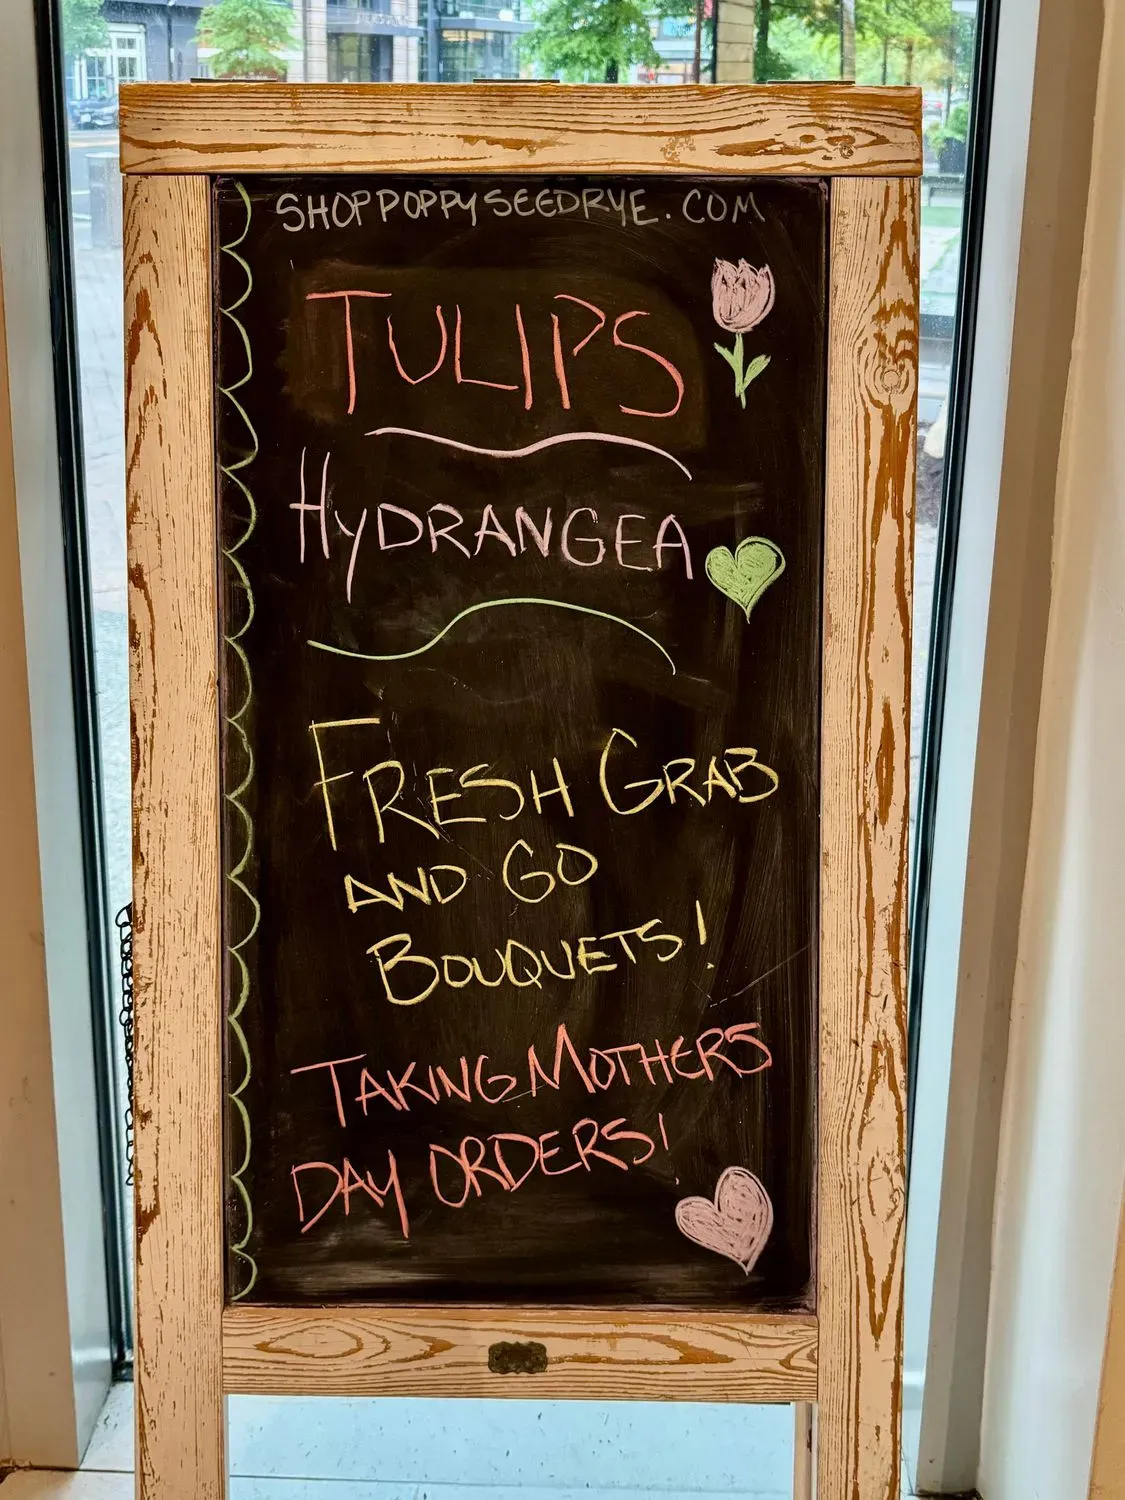 SHOPPOPPYSEEDRYE.COM
TULIPS
HYDRANGEA
FRESH GRAB
AND GO
BOUQUETS!
TAKING MOTHERS
DAY ORDERS!